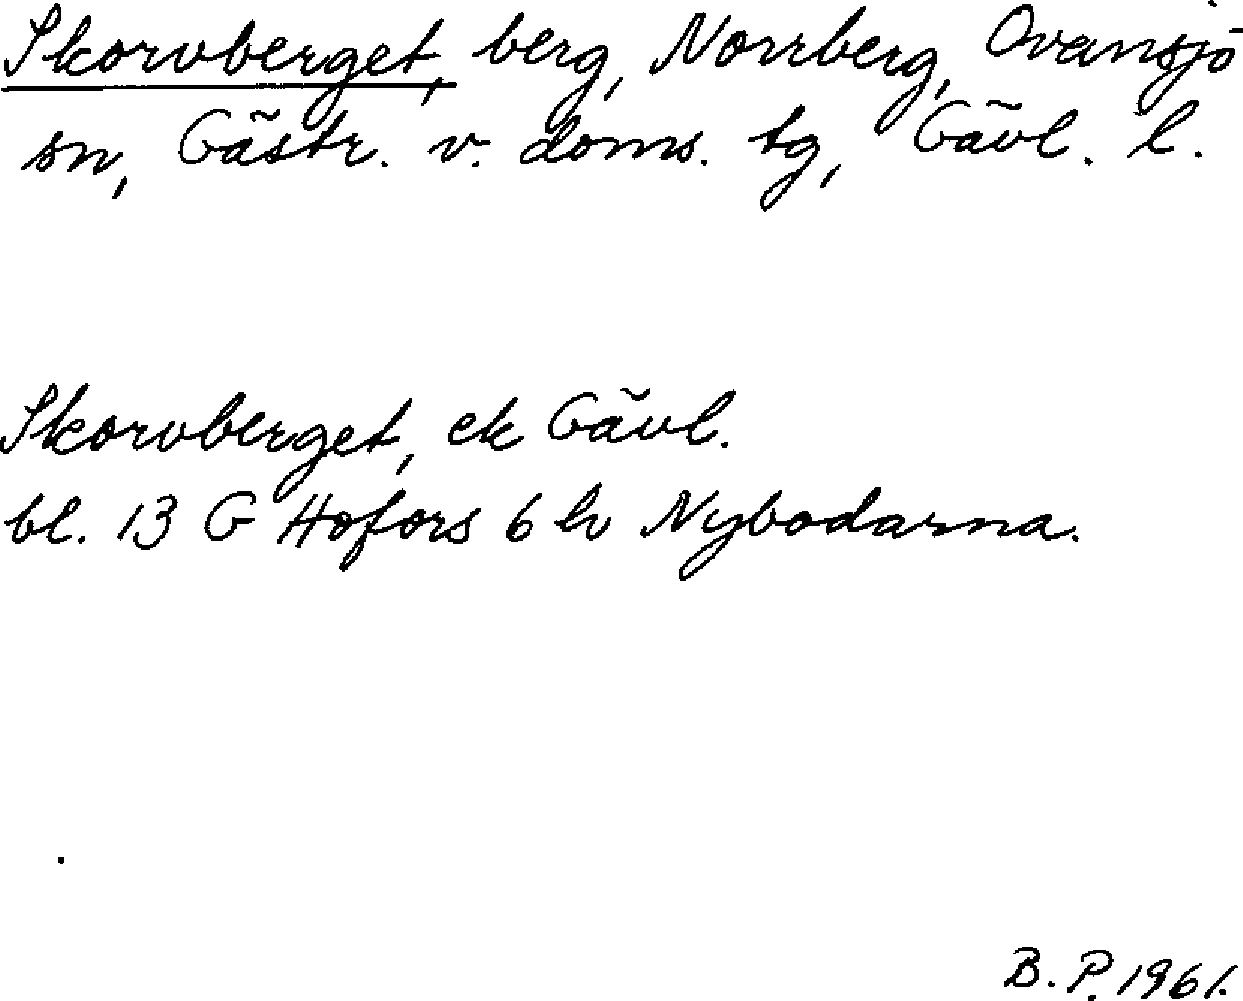 Skorvberget, berg, Norrberg, Ovansjö
sn, Gästr. v. doms. tg, Gävl. l.
Skorvberget, ek Gävl.
bl. 13 G Hofors 6 h Nybodarna.
B. P. 1961.